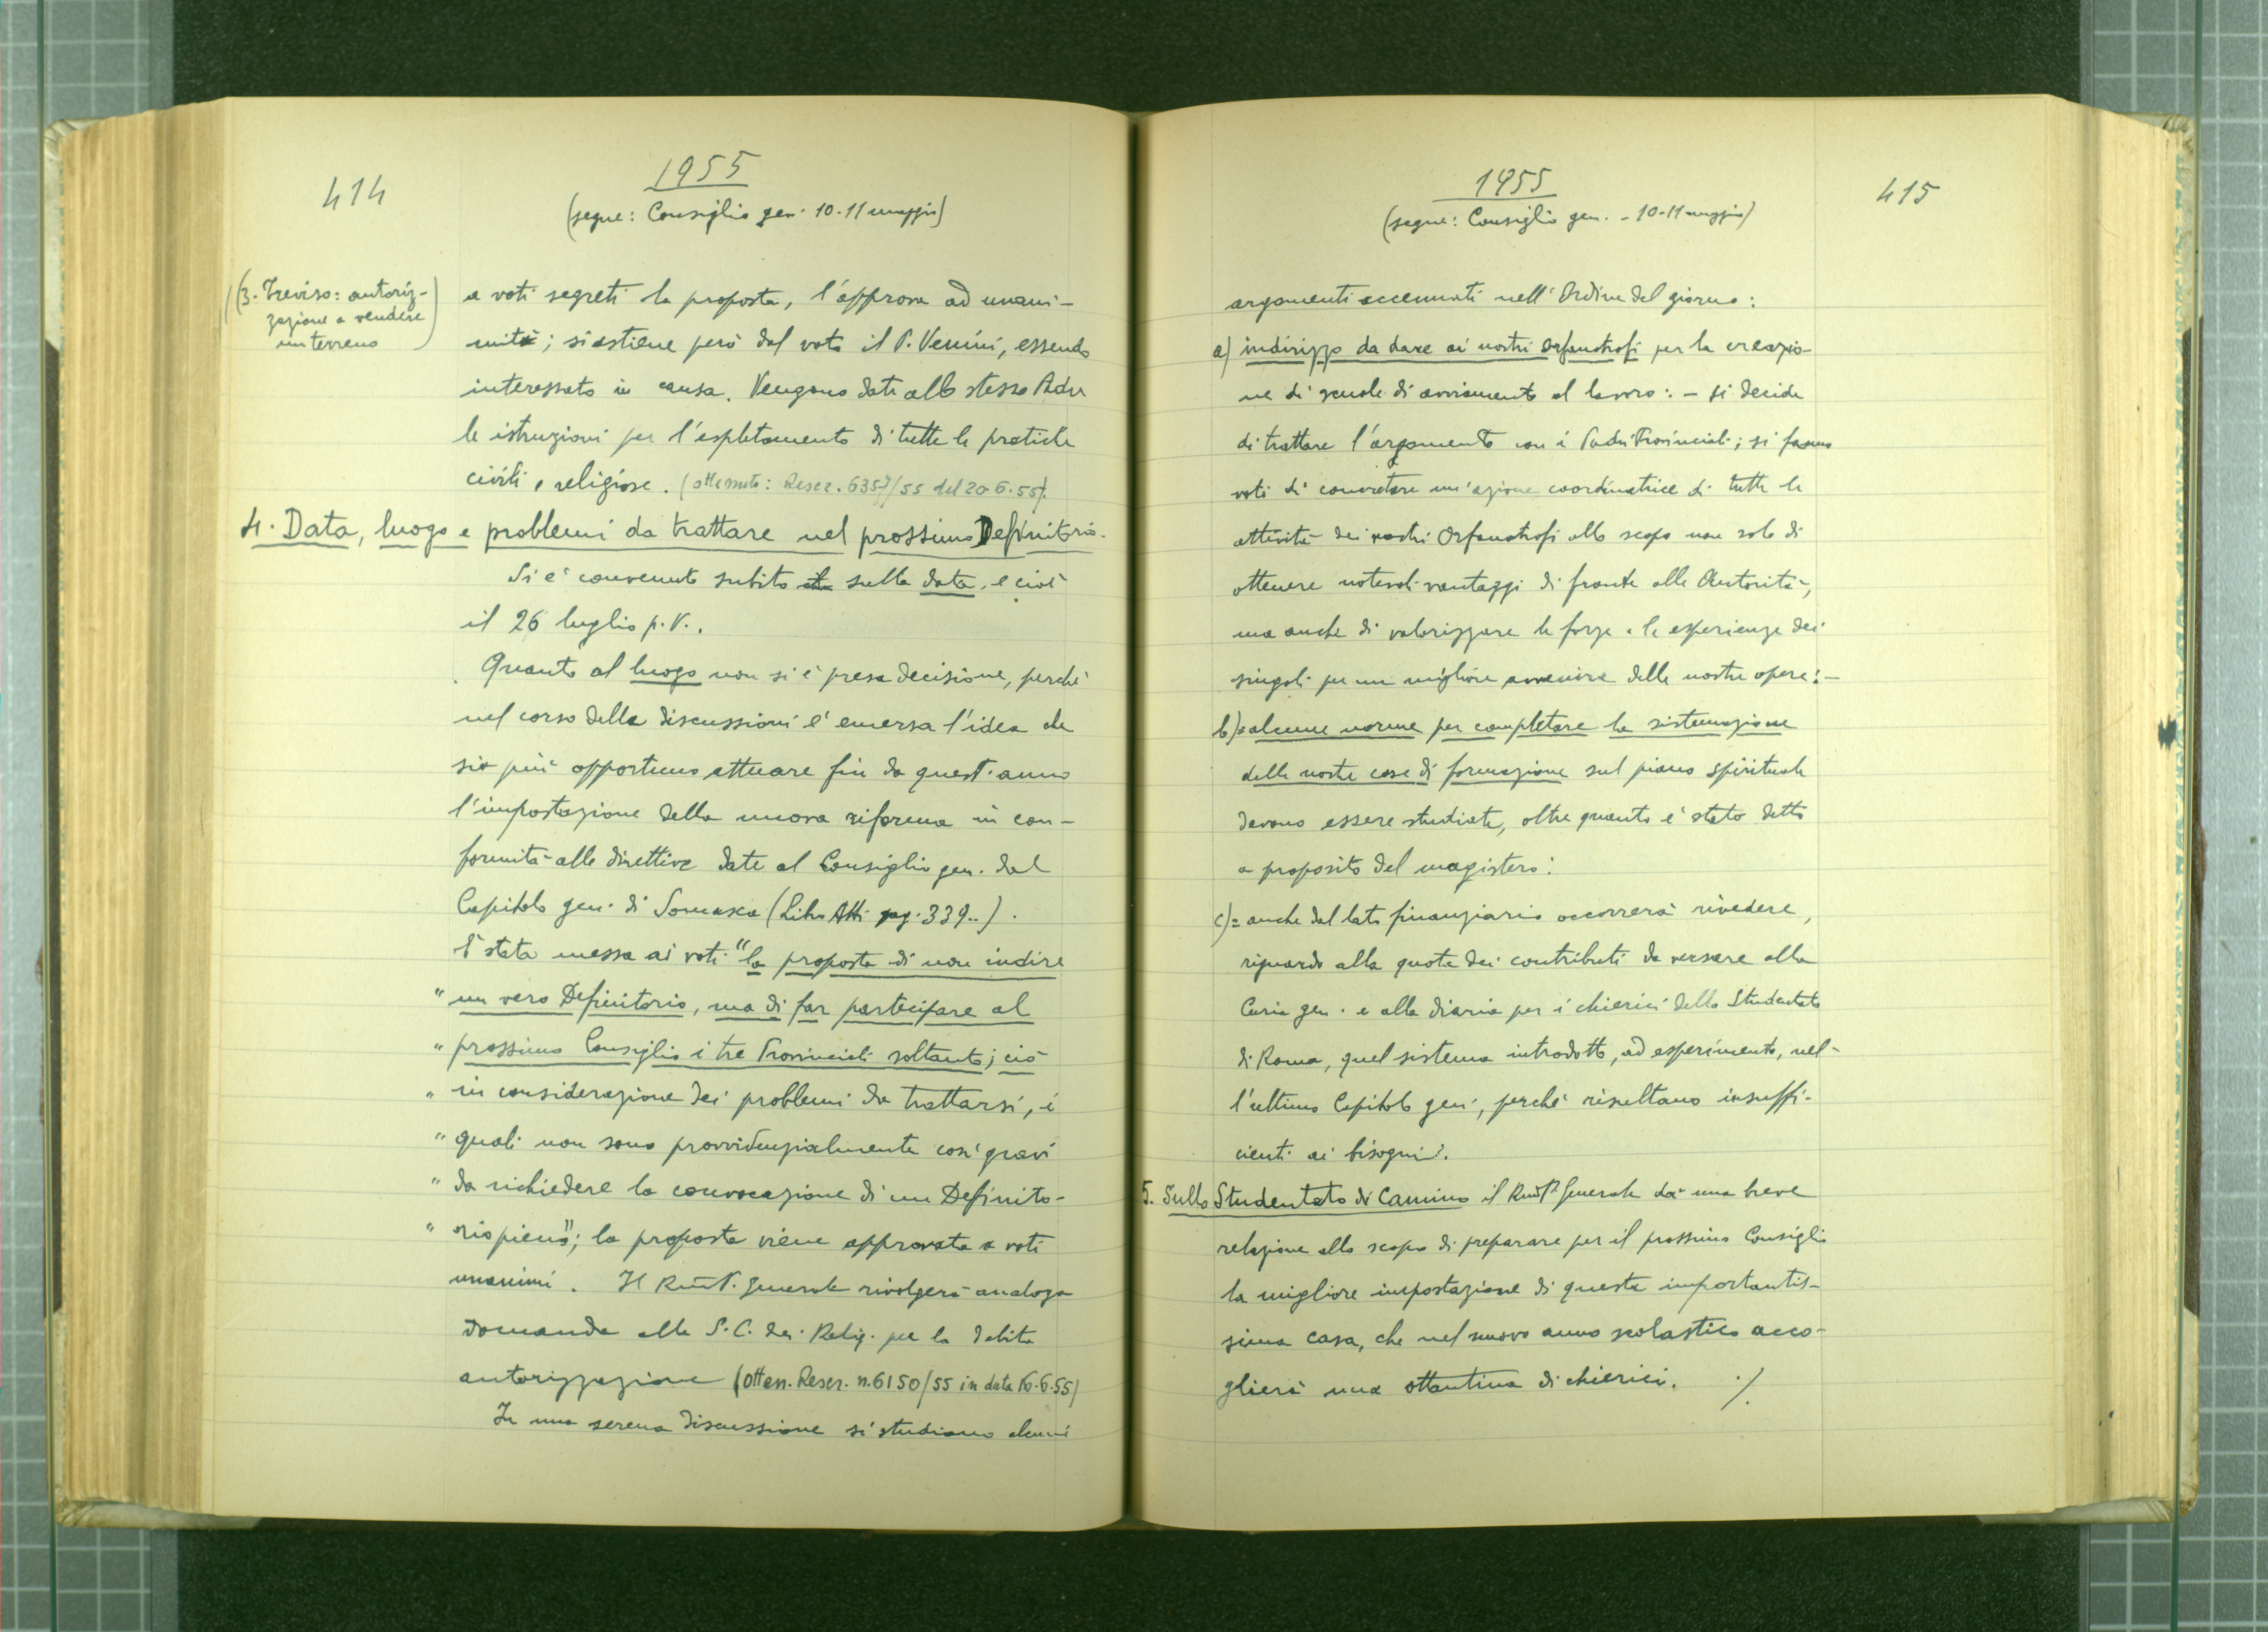 414
1955
(segue: Consiglio gen. 10-11 maggio)
(3. Treviso: autoriz-
zazione a vendere
un terreno)
a voti segreti la proposta, l'approva ad unani-
mità; si astiene però dal voto il P. Venini, essendo
interessato in causa. Vengono date allo stesso Padre
le istruzioni per l'espletamento di tutte le pratiche
civili e religiose. (ottenuto: Rescr. 6357/55 del 20-6-55).
4. Data, luogo e problemi da trattare nel prossimo Definitorio.
Si è convenuto subito sulla data, e cioè
il 26 luglio p.v..
Quanto al luogo non si è presa decisione, perchè
nel corso della discussioni è emersa l'idea che
sia più opportuno attuare fin da quest'anno
l'impostazione della nuova riforma in con-
formità alle direttive date al Consiglio gen. dal
Capitolo gen. di Somasca (Libro Atti pag. 339..).
È stata messa ai voti "la proposta di non indire
" un vero Definitorio, ma di far partecipare al
" prossimo Consiglio i tre Provinciali soltanto; ciò
" in considerazione dei problemi da trattarsi, i
" quali non sono provvidenzialmente così gravi
" da richiedere la convocazione di un Definito-
" rio pieno"; la proposta viene approvata a voti
unanimi. Il Rev.mo P. Generale rivolgerà analoga
domanda alla S.C. dei Relig. per la debita
autorizzazione (Otten. Rescr. n. 6150/55 in data 16.6.55)
In una serena discussione si studiano alcuni
1955
415
(segue: Consiglio gen. - 10-11 maggio)
argomenti accennati nell'Ordine del giorno:
a) indirizzo da dare ai nostri orfanotrofi per la creazio-
ne di scuole di avviamento al lavoro: - si decide
di trattare l'argomento con i Padri Provinciali; si fanno
voti di concretare un'azione coordinatrice di tutte le
attività dei nostri Orfanotrofi allo scopo non solo di
ottenere notevoli vantaggi di fronte alle Autorità,
ma anche di valorizzare le forze e le esperienze dei
singoli per un migliore avvenire delle nostre opere: -
b) = alcune norme per completare la sistemazione
delle nostre case di formazione sul piano spirituale
devono essere studiate, oltre quanto è stato detto
a proposito del magistero:
c) = anche dal lato finanziario occorrerà rivedere,
riguardo alla quota dei contributi da versare alla
Curia gen. e alla diaria per i chierici dello Studentato
di Roma, quel sistema introdotto, ad esperimento, nel-
l'ultimo Capitolo gen., perchè risultano insuffi-
cienti ai bisogni.
5. Sullo Studentato di Camino il Rev.mo P. Generale dà una breve
relazione allo scopo di preparare per il prossimo Consiglio
la migliore impostazione di questa importantis-
sima casa, che nel nuovo anno scolastico acco-
glierà una ottantina di chierici. ./.